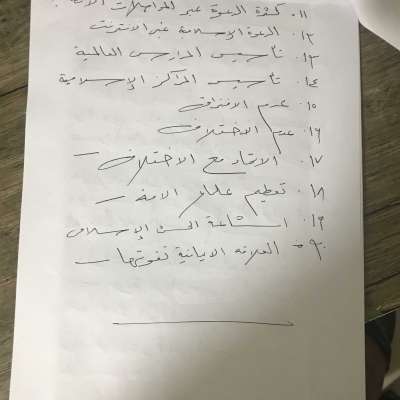 ١١. كثرة الدعوة عبر
١٢. الدعوة الإسلامية عبر الانترنت
١٣. تأسيس المدارس العالمية
١٤. تأسيس المراكز الإسلامية
١٥. عدم الافتراق
١٦. عدم الاختلاف
١٧. الاتحاد مع الاختلاف
١٨. تعظيم علماء الامة
١٩. اشاعة الإسلامي
٢٠. العلاقة الايمانية تقويتها